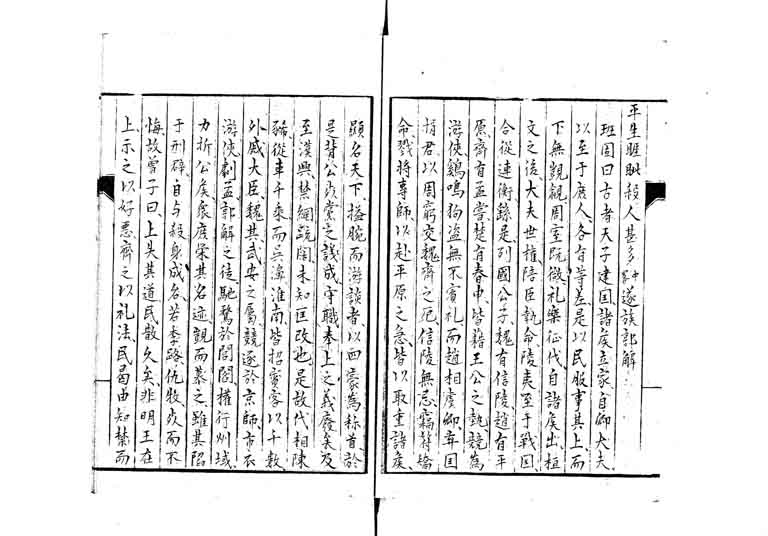 平生睚眦殺人甚多遂族郭解
班固曰古者天子建国諸侯立家自卿大夫
以至于庶人各有等差是以民服事其上而
下無覬覦周室既微礼樂征伐自諸侯出桓
文之後大夫世權陪臣執命陵夷至于戦国
合從連衡繇是列國公子魏有信陵趙有平
原齊有孟嘗楚有春申皆藉王公之埶競為
游俠鷄鳴狗盗無不賓礼而趙相虞卿弃国
捐君以周窮交魏齊之厄信陵無忌竊符矯
命戮将専師以赴平原之急皆以取重諸侯
顕名天下搤腕而游談者以四豪為称首於
是背公死黨之議成守職奉上之義廢矣及
至漢興禁網疏闊未知匡改也是故代相陳
豨從車千乗而呉濞淮南皆招賓客以千数
外戚大臣魏其武安之屬競逐於京師布衣
游俠劇孟郭解之徒馳騖於閭閻權行州域
力折公侯衆庶栄其名迹覬而慕之雖其陷
于刑辟自与殺身成名若季路仇牧死而不
悔故曽子曰上失其道民散久矣非明王在
上示之以好悪齊之以礼法民曷由知禁而